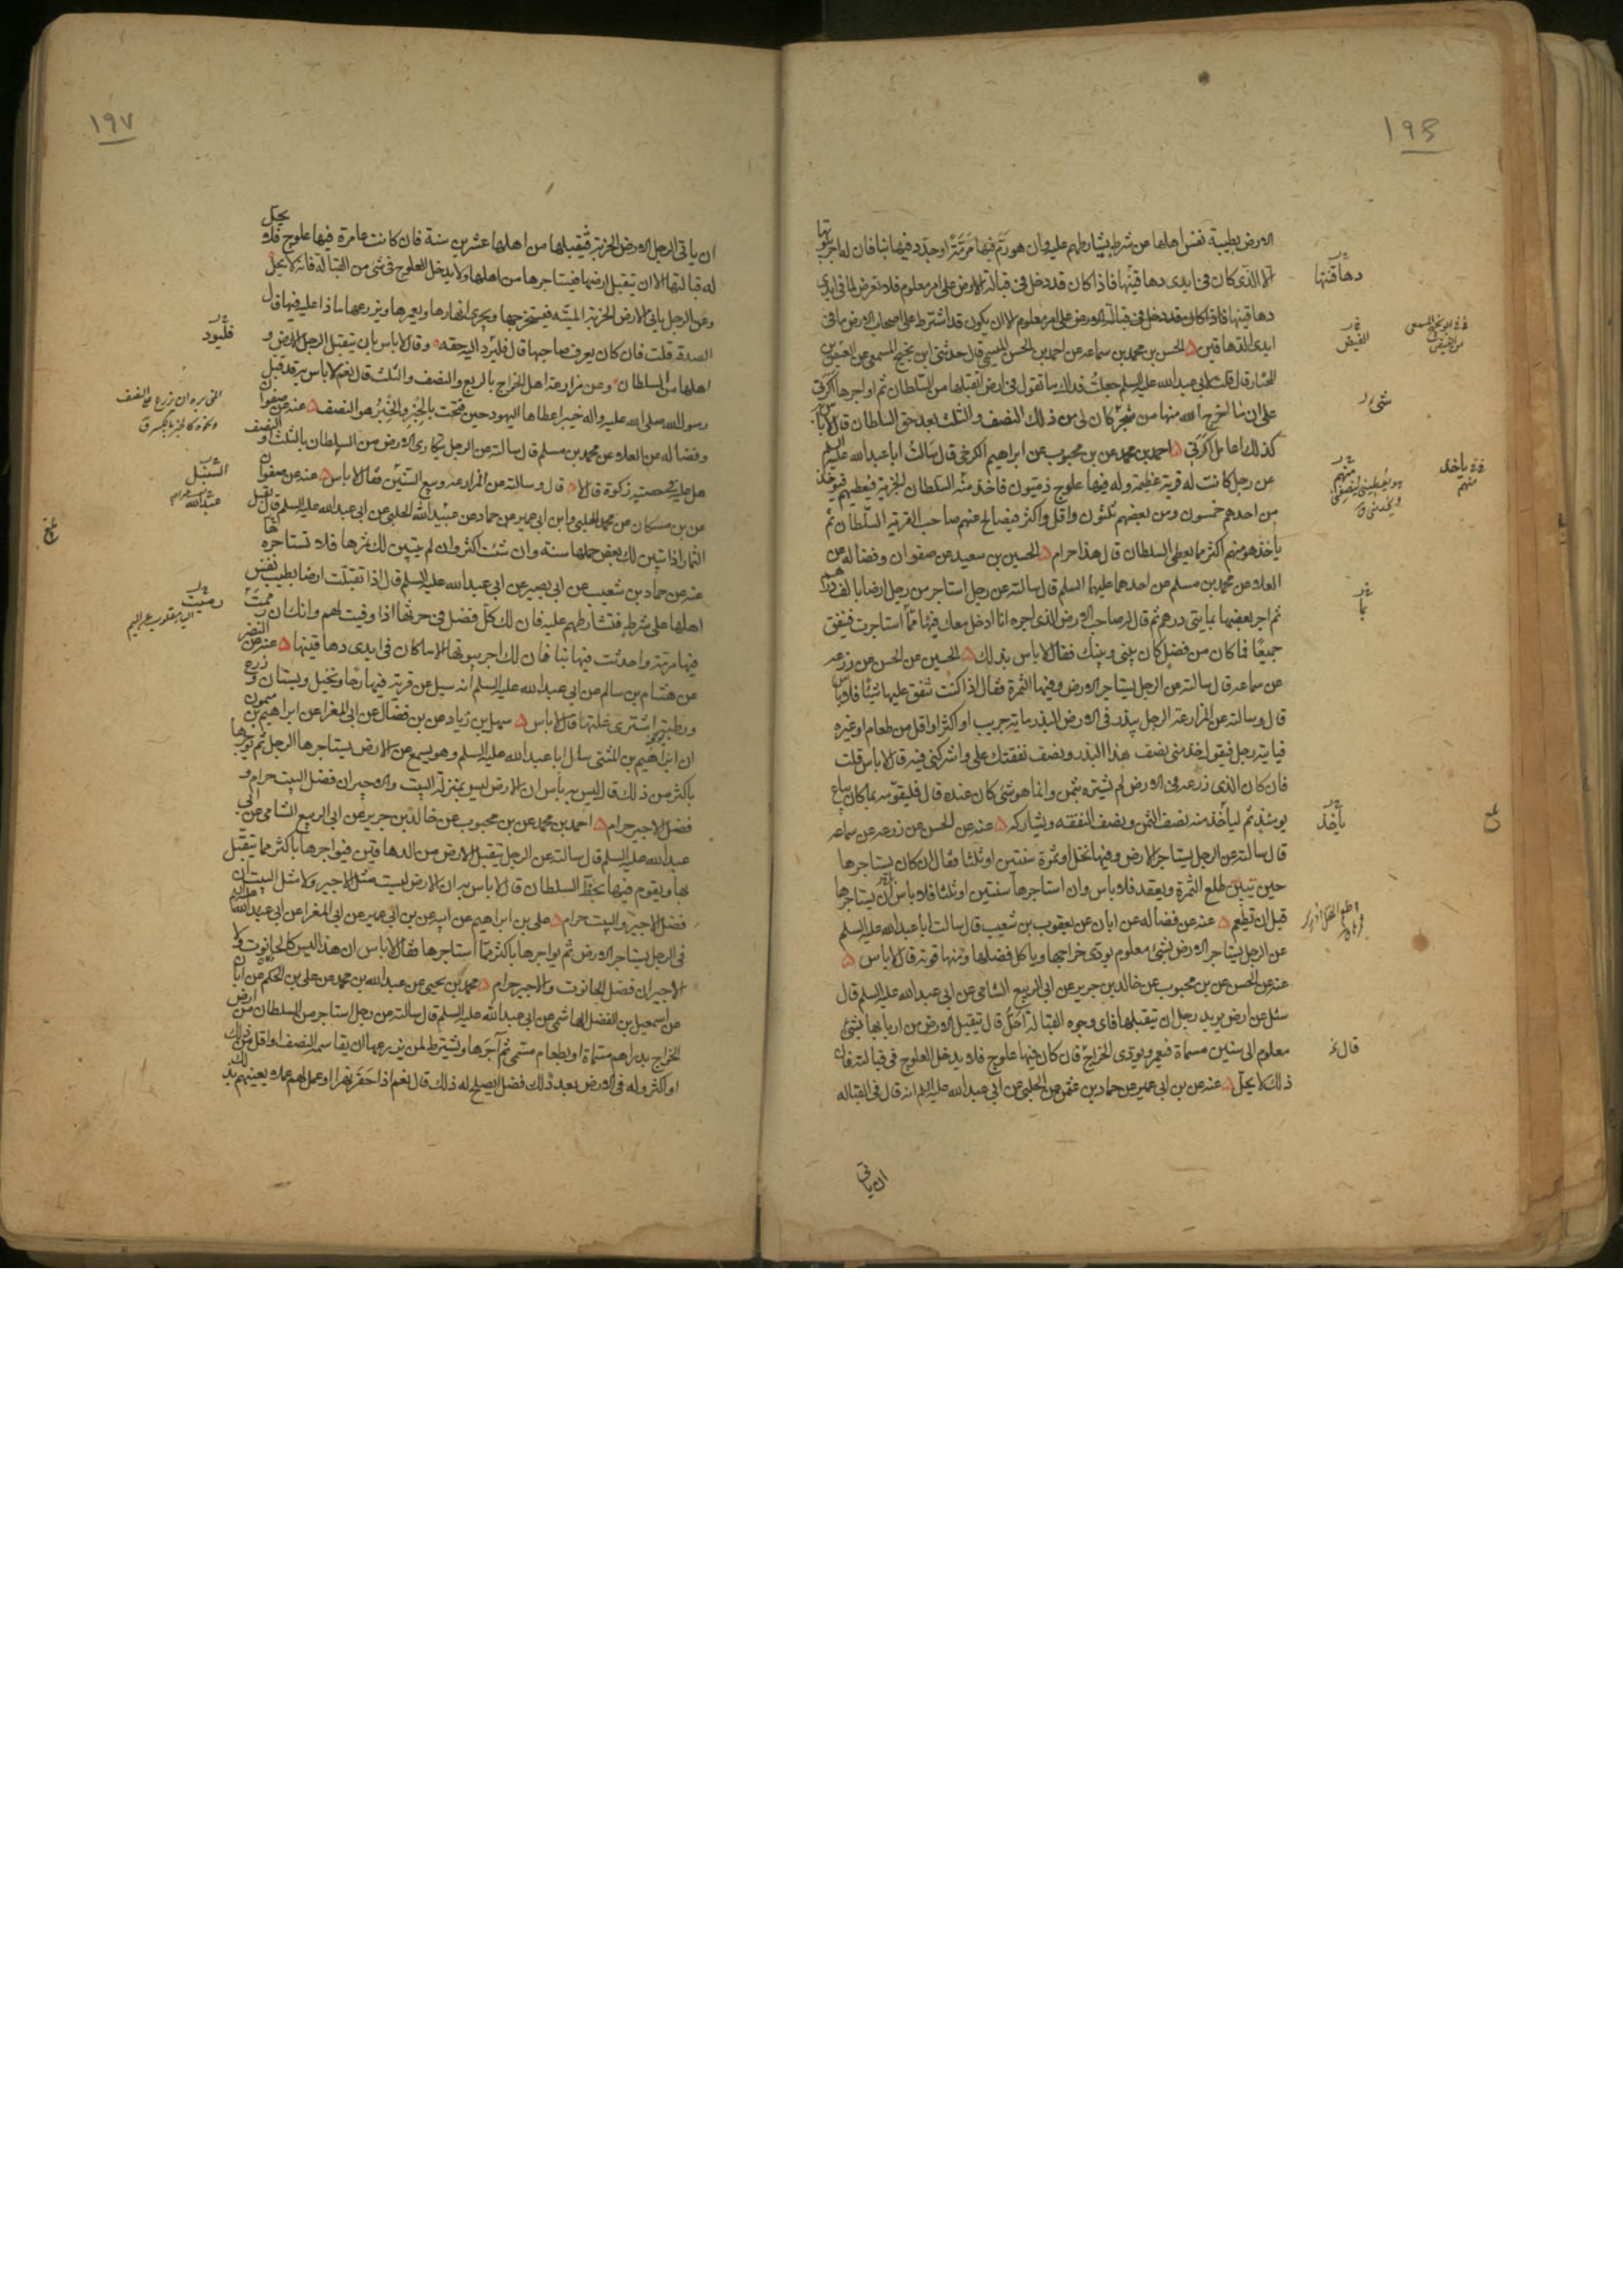 ١٩٦
الارض بطيبة نفس اهلها من شرط يشارطهم عليه وان هو رَمَّ فيها مَرَمَّةً او جدّد فيها بنا فان له اجر بيوتها
الّا الذى كان فى ايدى دهاقينها فاذا كان قد دخل فى قبالة الارض على امر معلوم فلا تعرض لما فى ايدى
دهاقينها فاذا كان قد دخل فى قبالة الارض على امر معلوم الا ان يكون قد اشترط على اصحاب الارض ما فى
ايدى الدهاقين الحسن بن محمد بن سماعه عن احمد بن الحسن الميثمى قال حدثنى ابن نجيح المسمعى عن الفيض بن
المختار قال قلت لابى عبد الله عليه السلم جعلت فداك ما تقول فى ارض اتقبلها من السلطان ثم اواجرها اكرتى
على ان ما اخرج الله منها من شئ كان لى من ذلك النصف والثلث بعد حق السلطان قال لا باس
كذلك اعامل اكرتى احمد بن محمد عن بن محبوب عن ابراهيم الكرخى قال سالتُ ابا عبد الله عليه السلم
عن رجل كانت له قرية عظيمة وله فيها علوج ذميون فاخذ منه السلطان الجزية فيعطيهم فيوخذ
من احدهم خمسون ومن بعضهم ثلثون واقل واكثر فيصالح عنهم صاحب القرية السلطان ثم
ياخذ هو منهم اكثر مما يعطى السلطان قال هذا حرام الحسين بن سعيد عن صفوان وفضاله عن
العلا عن محمد بن مسلم عن احدهما عليهما السلم قال سالته عن رجل استاجر من رجل ارضا بالف درهم
ثم اجر بعضها بمايتى درهم ثم قال له صاحب الارض الذى اجره انا ادخل معك فيها مما استاجرت فننفق
جميعًا فما كان من فضل كان بينى وبينك فقال لا باس بذلك الحسين عن الحسن عن زرعه
عن سماعه قال سالته عن الرجل يستاجر الارض وفيها الثمرة فقال اذا كنت تنفق عليها شيئا فلا باس
قال وسالته عن المزارعة الرجل يبذر فى الارض البذر ماية جريب او اكثر او اقل من طعام او غيره
فياتيه رجل فيقول خذ منى نصف هذا البذر ونصف نفقتك على واشركنى فيه قال لا باس قلت
فان كان الذى زرعه فى الارض لم يشتره بثمن وانما هو شئ كان عنده قال فليقومه بما كان يباع
يومئذ ثم لياخذ منه نصف الثمن ونصف النفقه ويشاركه عنه عن الحسن عن زرعه عن سماعه
قال سالته عن الرجل يستاجر الارض وفيها نخل او ثمرة سنتين او ثلثا فقال ان كان يستاجرها
حين تبين طلع الثمرة ويعقد فلا باس وان استاجرها سنتين او ثلثا فلا باس ان يستاجرها
قبل ان تطعم عنه عن فضاله عن ابان عن يعقوب بن شعيب قال سالت ابا عبد الله عليه السلم
عن الرجل يستاجر الارض بشئ معلوم يودى خراجها وياكل فضلها ومنها قوته قال لا باس
عنه عن الحسن عن بن محبوب عن خالد بن جرير عن ابى الربيع الشامى عن ابى عبد الله عليه السلم قال
سئل عن ارض يريد رجل ان يتقبلها فاى وجوه القبالة احلّ قال يتقبل الارض من اربابها بشئ
معلوم الى سنين مسماة فيعمر ويودى الخراج قال كان فيها علوج فلا يدخل العلوج فى قبالته فان
ذلك لا يحلّ عنه عن بن ابى عمير عن حماد بن عثمن عن الحلبى عن ابى عبد الله عليه السلم انه قال فى القباله
ان ياتى
دهاقنتها
الفيض
شئ
منهم
ياخذ منهم
بما
ياخذ
قال
١٩٧
ان ياتى الرجل الارض الخربة فيقبلها من اهلها عشرين سنة فان كانت عامرة فيها علوج فلا يحل
له قبالتها الا ان يتقبل ارضها فيستاجرها من اهلها ولا يدخل العلوج فى شئ من القبالة فانه لا يحل
وعن الرجل ياتى الارض الخربة الميّته فيستخرجها ويجرى انهارها ويعمرها ويزرعها ماذا عليه فيها قال
الصدقة قلت فان كان يعرف صاحبها قال فليرد اليه حقه وقال لا باس بان يتقبل الرجل الارض و
اهلها من السلطان وعن مزارعة اهل الخراج بالربع والنصف والثلث قال نعم لا باس به قد قبل
رسول الله صلى الله عليه واله خيبر اعطاها اليهود حين فتحت بالخِبْرِ والخِبْرُ هو النصف عنه عن صفوان
وفضاله عن العلا عن محمد بن مسلم قال سالته عن الرجل يتكارى الارض من السلطان بالثلث او النصف
هل عليه فى حصته زكوة قال لا قال وسالته عن المزارعة وبيع السنين فقال لا باس عنه عن صفوان
عن بن مسكان عن محمد الحلبى وابن ابى عمير عن حماد عن عبيد الله الحلبى عن ابى عبد الله عليه السلم قال تقبل
الثمار اذا تبين لك بعض حملها سنة وان شئت اكثر وان لم يتبين لك ثمرها فلا تستاجره
عنه عن حماد بن شعيب عن ابى بصير عن ابى عبد الله عليه السلم قال اذا تقبلت ارضا بطيب نفس
اهلها على شرط فتشارطهم عليه فان لك كل فضل فى حرثها اذا وفيت لهم وانك ان رممتَ
فيها مرمة واحدثت فيها بنا فان لك اجر بيوتها الا ما كان فى ايدى دهاقينها عنه عن النضر
عن هشام بن سالم عن ابى عبد الله عليه السلم انه سيل عن قرية فيها رحا ونخيل وبستان وزرع
ورطبة اشترى غلتها قال لا باس سهل بن زياد عن بن فضال عن ابى المغرا عن ابراهيم بن ميمون
ان ابراهيم بن المثنى سال ابا عبد الله عليه السلم وهو يسمع عن الارض يستاجرها الرجل ثم يوجرها
باكثر من ذلك قال ليس به باس ان الارض ليس بمنزلة البيت والاجير ان فضل البيت حرام و
فضل الاجير حرام احمد بن محمد عن بن محبوب عن خالد بن جرير عن ابى الربيع الشامى عن ابى
عبد الله عليه السلم قال سالته عن الرجل يتقبل الارض من الدهاقين فيواجرها باكثر مما يتقبل
بها ويقوم فيها بحظّ السلطان قال لا باس به ان الارض ليست مثل الاجير ولا مثل البيت ان
فضل الاجير والبيت حرام على بن ابراهيم عن ابيه عن بن ابى عمير عن ابى المغرا عن ابى عبد الله عليه السلم
فى الرجل يستاجر الارض ثم يواجرها باكثر مما استاجرها فقال لا باس ان هذا ليس كالحانوت ولا
الاجير ان فضل الحانوت والاجير حرام محمد بن يحيى عن عبد الله بن محمد عن على بن الحكم عن ابان
عن اسمعيل بن الفضل الهاشمى عن ابى عبد الله عليه السلم قال سالته عن رجل استاجر من السلطان من ارض
الخراج بدراهم مسماة او بطعام مسمى ثم آجَرَها وشرط لمن يزرعها ان يقاسمه النصف او اقل من ذلك
او اكثر وله فى الارض بعد ذلك فضل ايصلح له ذلك قال نعم اذا حَفَرَ نهرا او عمل لهم عملا يعينهم بذلك
فليؤد
السنبل
عبد الله
رممت